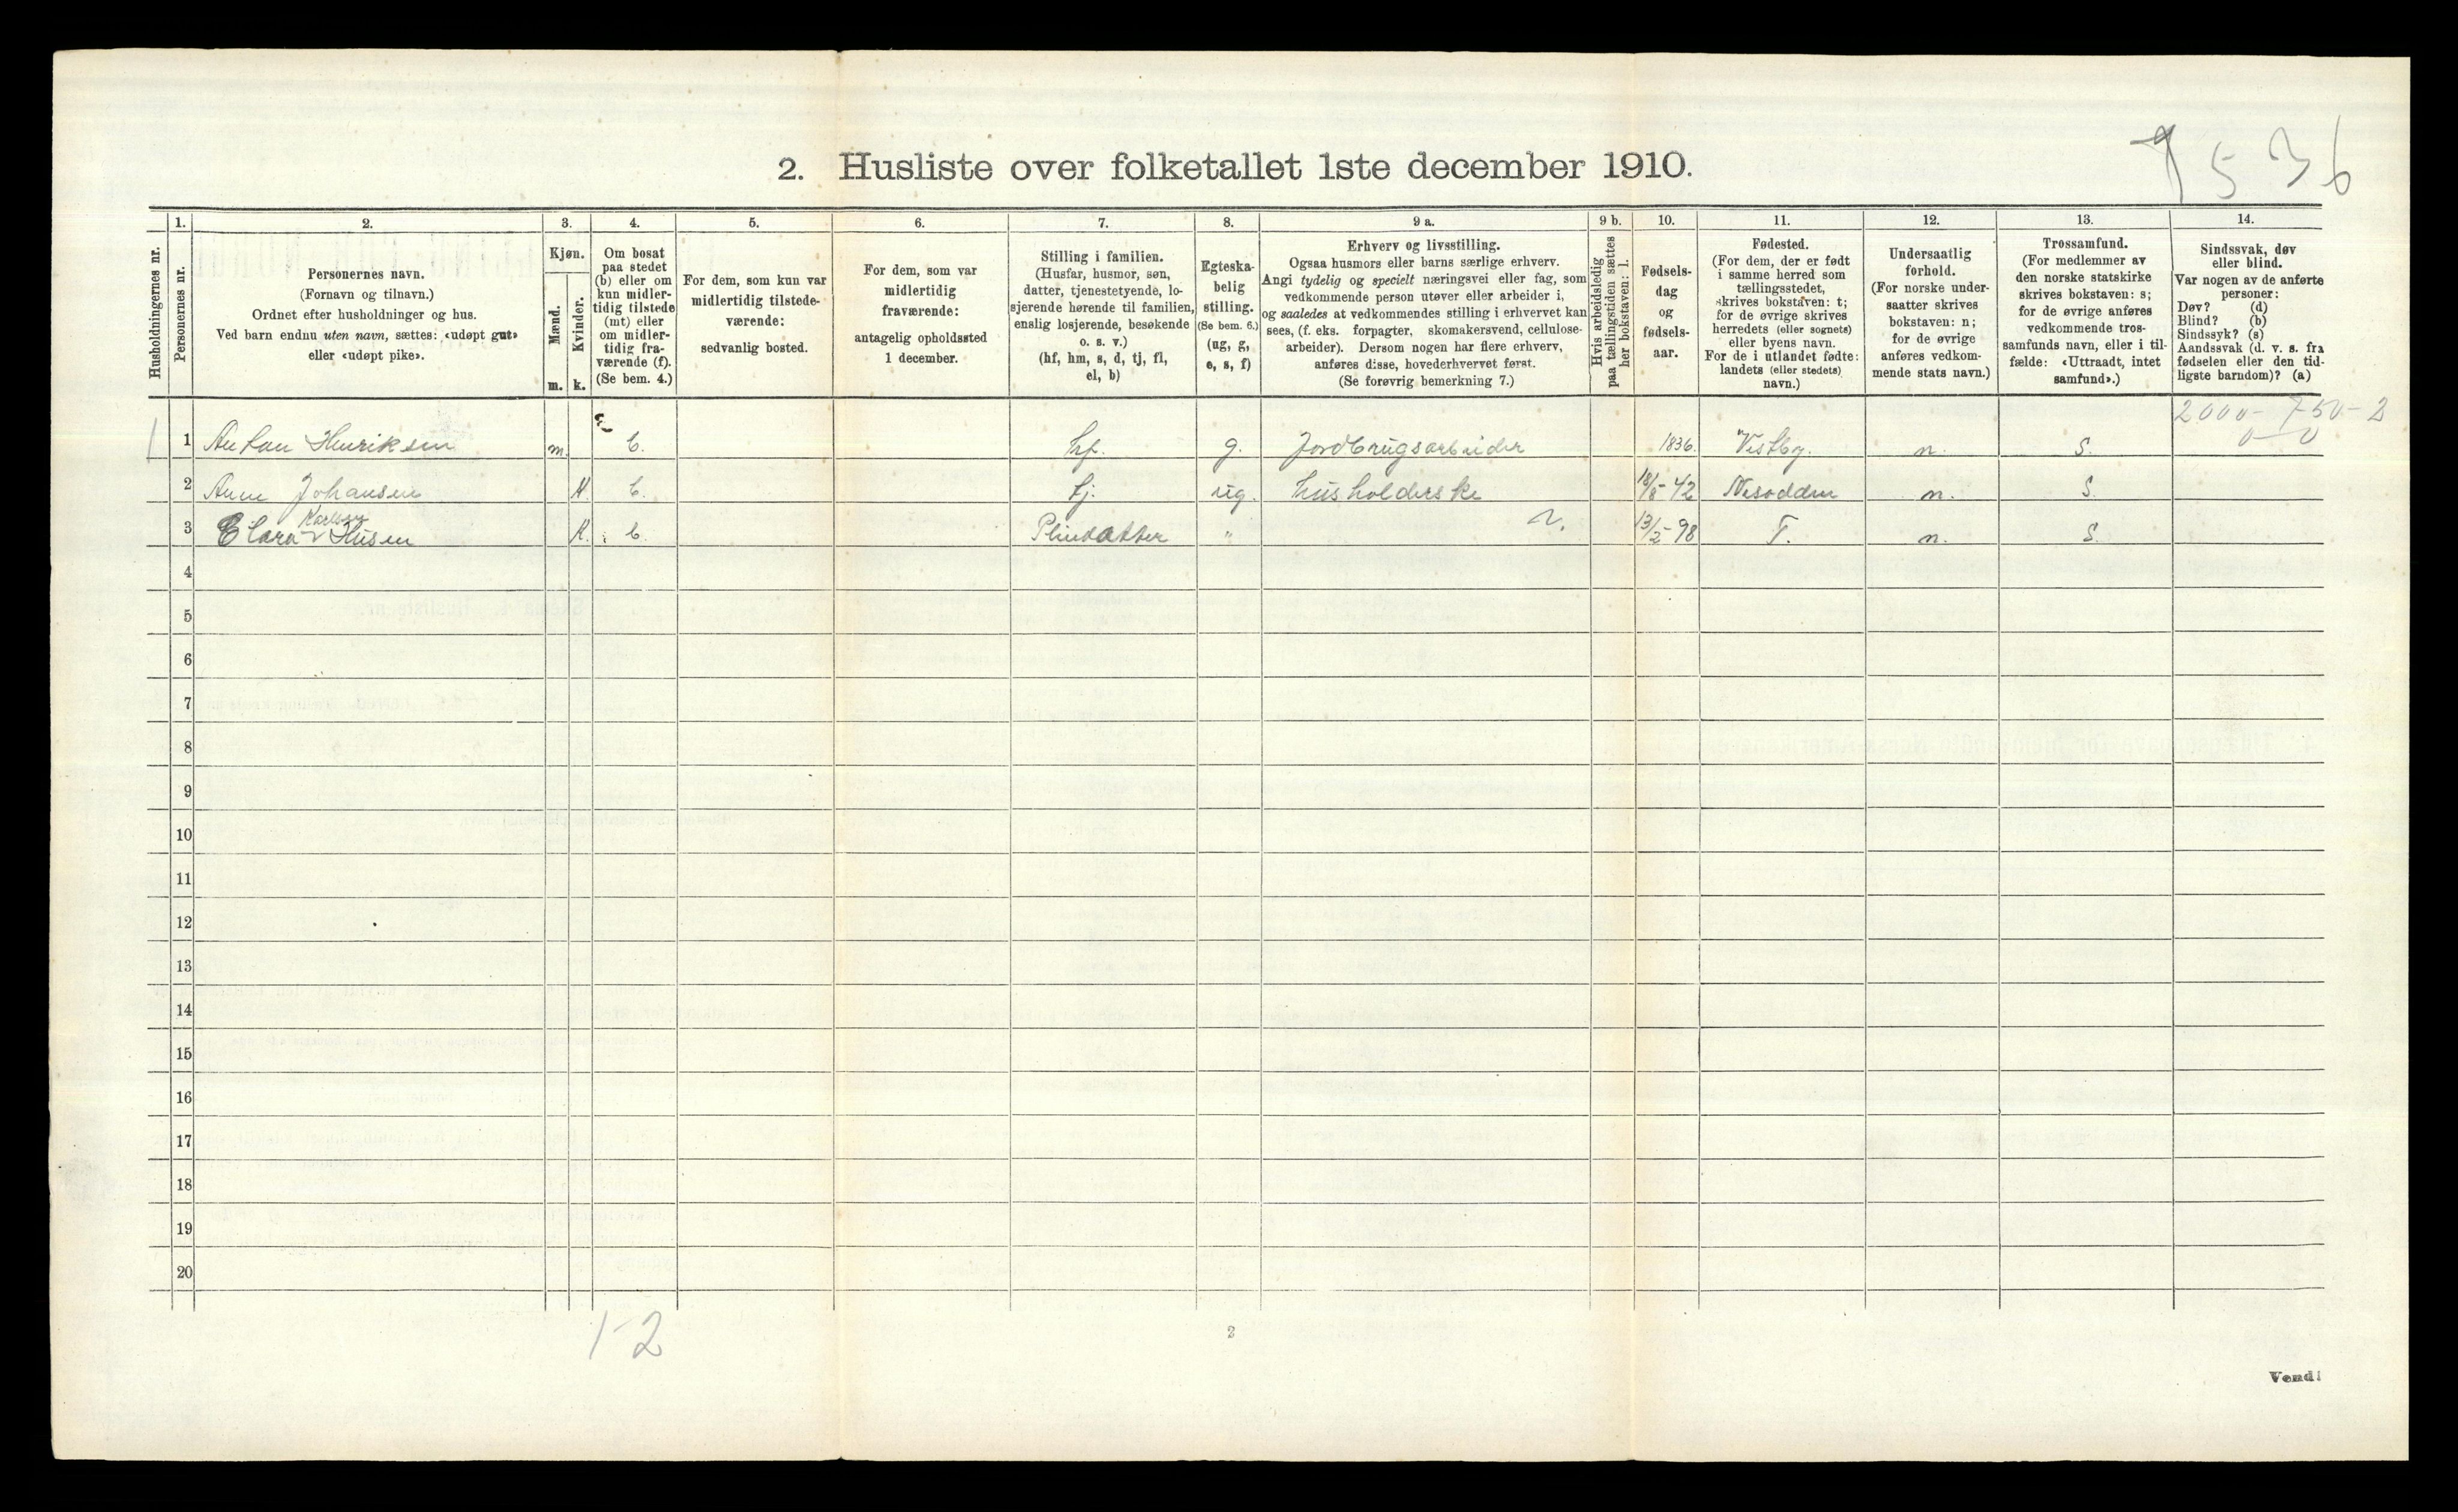 7 5 3 6
2. Husliste over folketallet 1ste december 1910.
Husholdningernes nr.
1.
Personernes nr.
2.
Personernes navn.
(Fornavn og tilnavn.)
Ordnet efter husholdninger og hus.
Ved barn endnu uten navn, sættes: «udøpt gut»
eller «udøpt pike».
3.
Kjøn.
Mænd.
Kvinder.
m. k.
4.
Om bosat
paa stedet
(b) eller om
kun midler-
tidig tilstede
(mt) eller
om midler-
tidig fra-
værende (f).
(Se bem. 4.)
5.
For dem, som kun var
midlertidig tilstede-
værende:
sedvanlig bosted.
6.
For dem, som var
midlertidig
fraværende:
antagelig opholdssted
1 december.
7.
Stilling i familien.
(Husfar, husmor, søn,
datter, tjenestetyende, lo-
sjerende hørende til familien,
enslig losjerende, besøkende
o. s. v.)
(hf, hm, s, d, tj, fl,
el, b)
8.
Egteska-
belig
stilling.
(Se bem. 6.)
(ug, g,
e, s, f)
9 a.
Erhverv og livsstilling.
Ogsaa husmors eller barns særlige erhverv.
Angi tydelig og specielt næringsvei eller fag, som
vedkommende person utøver eller arbeider i,
og saaledes at vedkommendes stilling i erhvervet kan
sees, (f. eks. forpagter, skomakersvend, cellulose-
arbeider). Dersom nogen har flere erhverv,
anføres disse, hovederhvervet først.
(Se forøvrig bemerkning 7.)
9 b.
Hvis arbeidsledig
paa tællingstiden sættes
her bokstaven: l.
10.
Fødsels-
dag
og
fødsels-
aar.
11.
Fødested.
(For dem, der er født
i samme herred som
tællingsstedet,
skrives bokstaven: t;
for de øvrige skrives
herredets (eller sognets)
eller byens navn.
For de i utlandet fødte:
landets (eller stedets)
navn.)
12.
Undersaatlig
forhold.
(For norske under-
saatter skrives
bokstaven: n;
for de øvrige
anføres vedkom-
mende stats navn.)
13.
Trossamfund.
(For medlemmer av
den norske statskirke
skrives bokstaven: s;
for de øvrige anføres
vedkommende tros-
samfunds navn, eller i til-
fælde: «Uttraadt, intet
samfund».)
14.
Sindssvak, døv
eller blind.
Var nogen av de anførte
personer:
Døv? (d)
Blind? (b)
Sindssyk? (s)
Aandssvak (d. v. s. fra
fødselen eller den tid-
ligste barndom)? (a)
2000 - 750 - 2
0 - 0
1 1 Anton Henriksen m. b. hf. g. Jordbrugsarbeider 1836. Vestby. n. S.
2 Anne Johansen K. b. tj. ug. husholderske 18/8-42 Nesodden n. S.
Karlsen
3 Clara Husen K. b. Pleiedatter " 13/2-98 T. n. S.
4
5
6
7
8
9
10
11
12
13
14
15
16
17
18
19
20
1-2
2
Vend!